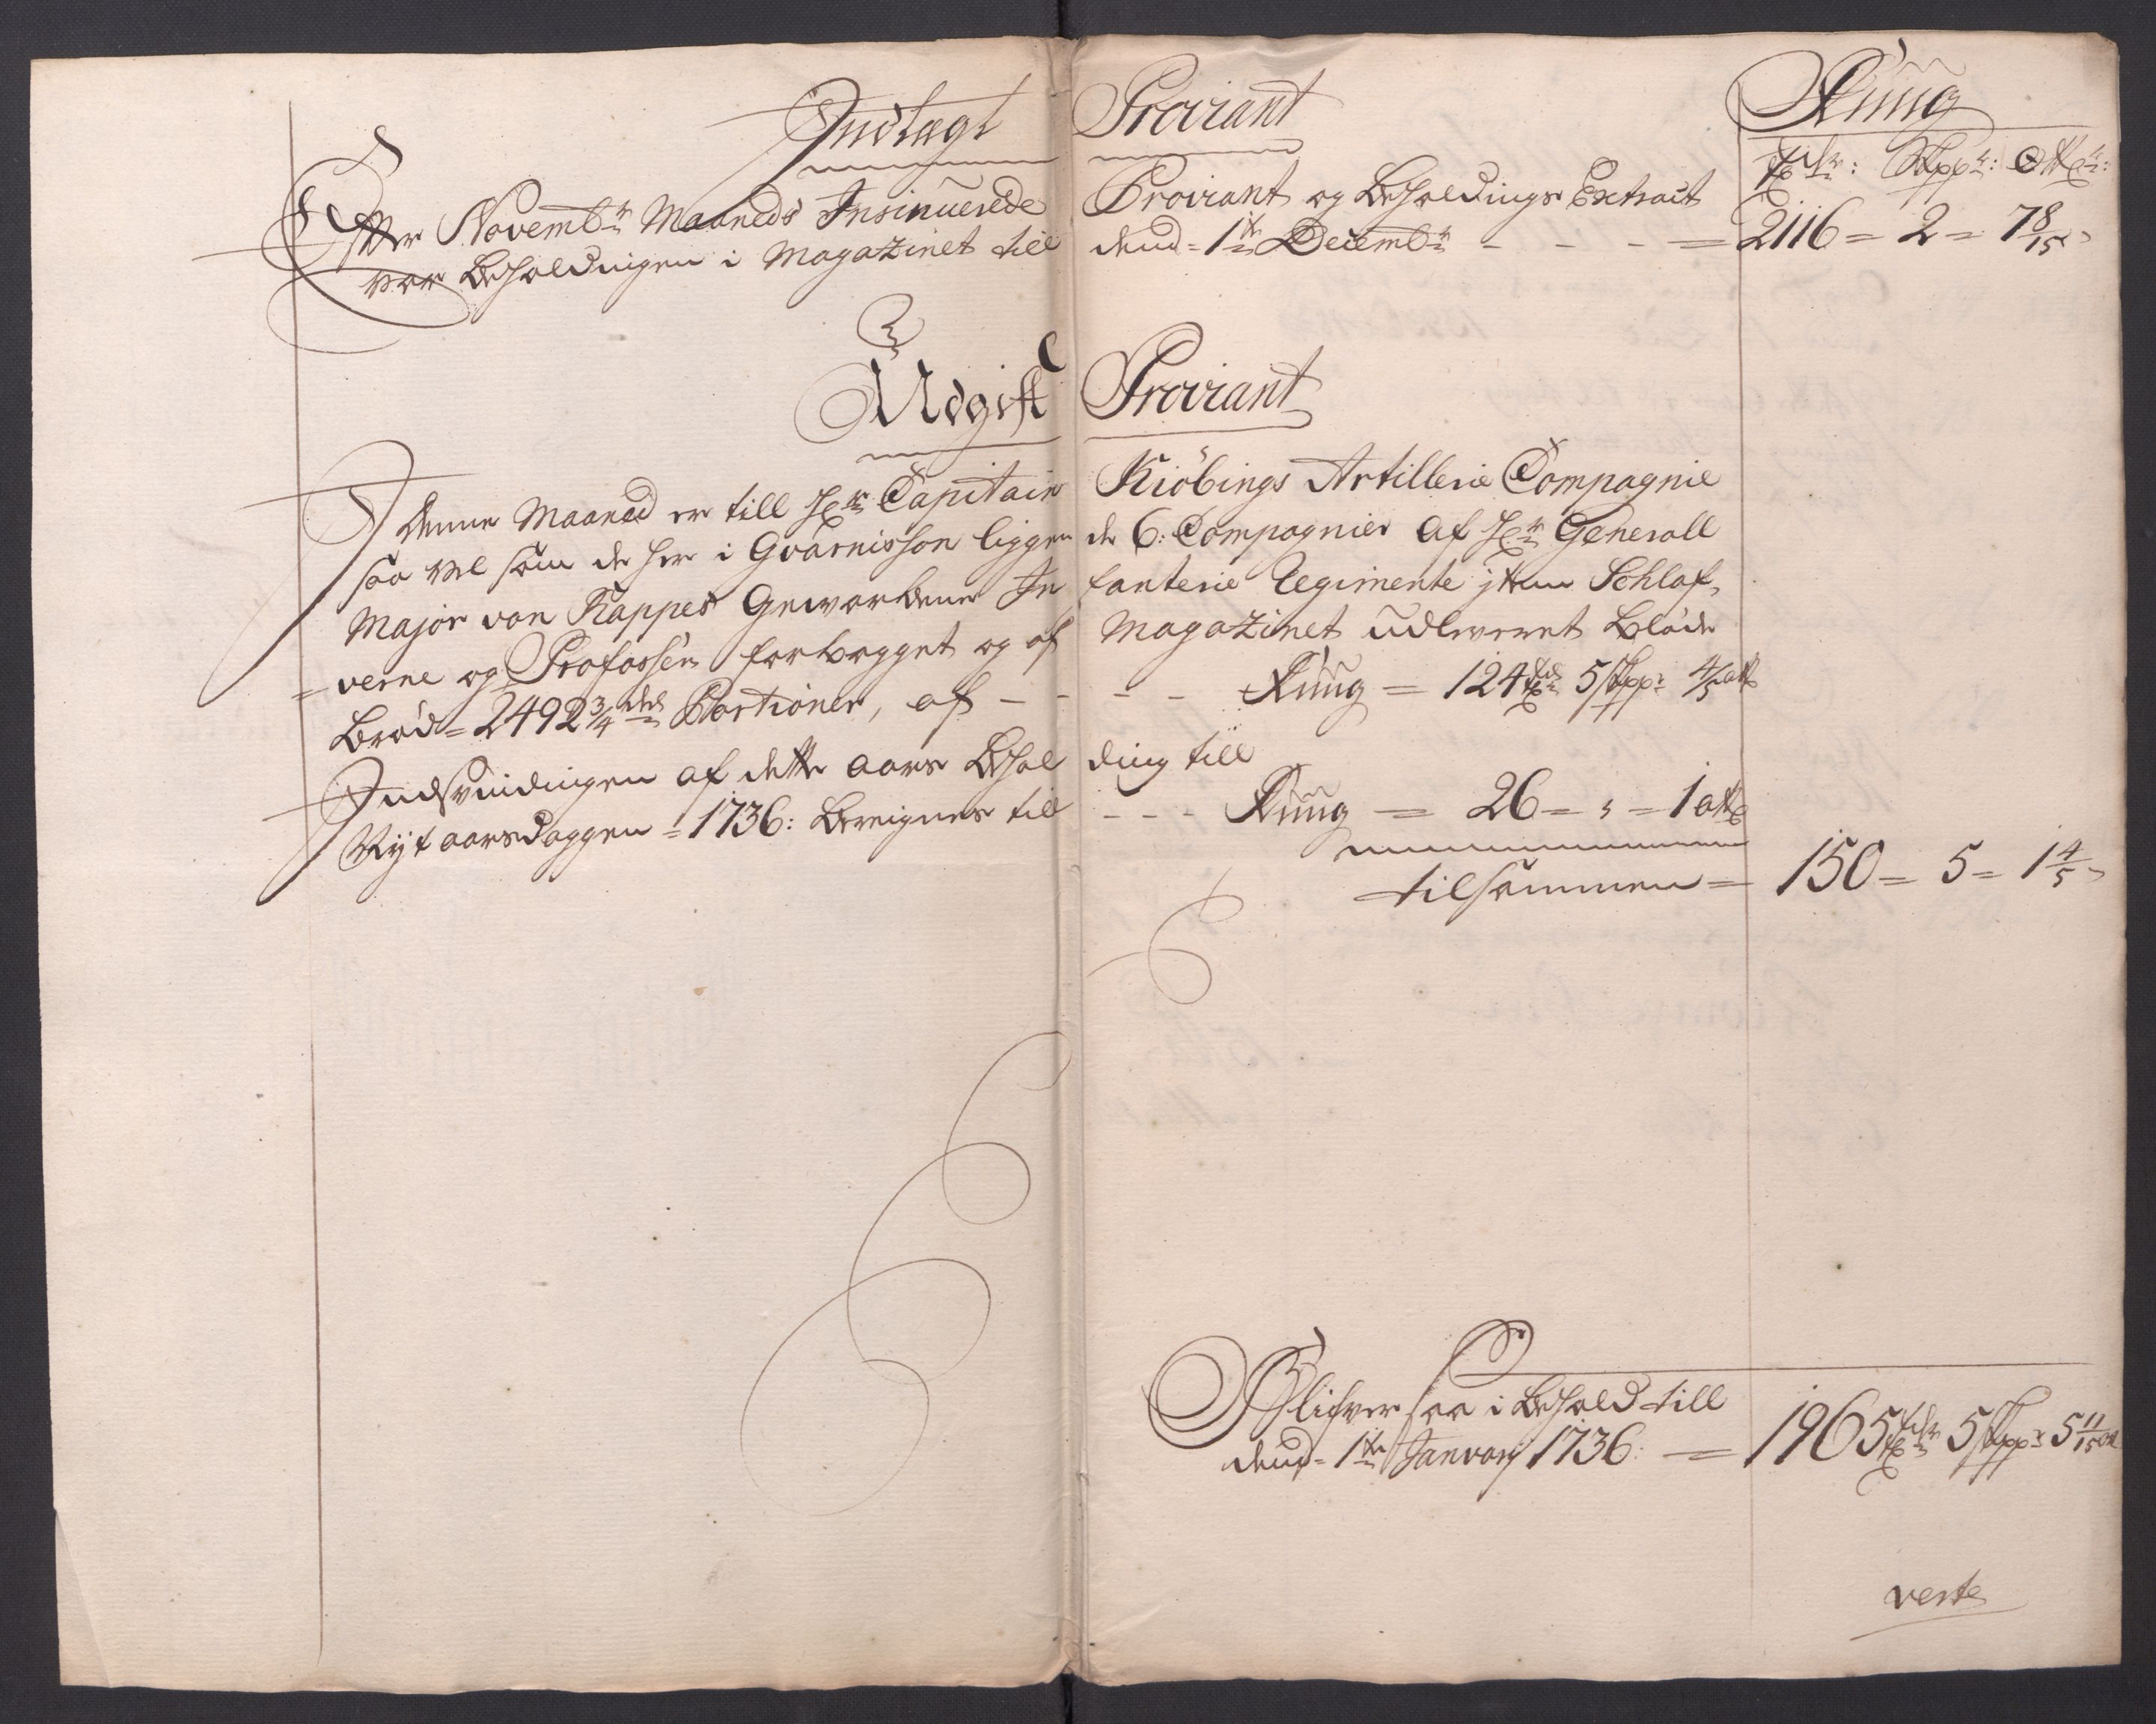 Indtægt Proviant
Rúúg
tdr: Skppr: Ottkr:
Efter Novembr Maaneds Insinúerede Proviant og Beholdings Extract
var Beholdningen i Magazinet till dend= 1te Decembr - - - = 2116 = 2 = 7 8/15
Udgift Proviant
I denne Maaned er till Hr: Capitain Kiöbings Artillerie Compagnie
saa vel som de her i Gvarnisson liggende 6: Compagnier af Hr: Generall
Major von Kappes Gevorbene Infanterie Regimente jtem Schlaf-
=verne og Profossen forbagget og af Magazinet udleveret bløde
Brød= 2492 3/4 deel Portioner, af - - - - Rúúg = 124 tdr 5 skppr: 4/5 ottk
Indsvindingen af dette aars Beholding till
Nÿt aarsdaggen = 1736: Bereignes till - - - Rúúg = 26 = „ = 1 ottk
tilsammen = 150 = 5 = 1 4/5
Blifver saa i Behold till
dend= 1te Janvarj 1736: = 1965 tdr 5 skppr 5 11/15 ott
verte